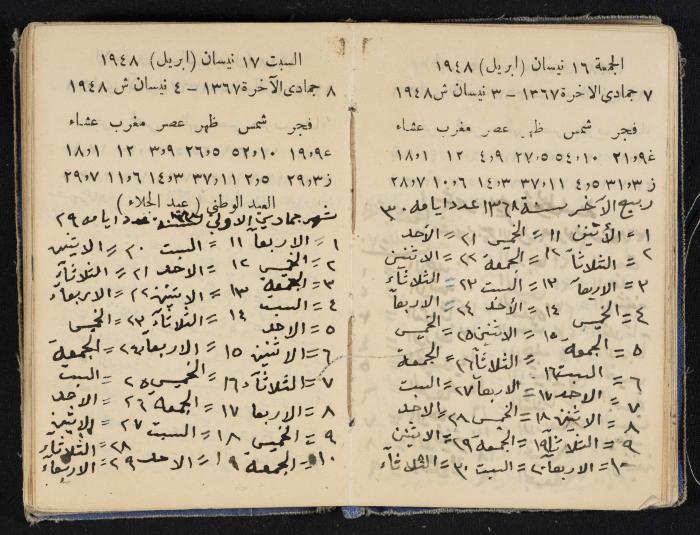 الجمعة ١٦ نيسان (ابريل) ١٩٤٨
٧ جمادى الآخرة ١٣٦٧ – ٣ نيسان ش ١٩٤٨
فجر شمس ظهر عصر مغرب عشاء
غ ٩٫٢١ ١٠٫٥٤ ٥٫٢٧ ٩٫٤ ١٢ ١٫١٨
ز ٣٫٣١ ٥٫٤ ١١٫٣٧ ٣٫١٤ ٦٫١٠ ٧٫٢٨
ربيع الآخر سنة ١٣٦٨ عدد ايامه ٣٠
١ = الأثنين ١١ = الخميس ٢١ = الأحد
٢ = الثلاثآ ١٢ = الجمعة ٢٢ = الاثنين
٣ = الاربعآ ١٣ = السبت ٢٣ = الثلاثآء
٤ = الخميس ١٤ = الأحد ٢٤ = الاربعآ
٥ = الجمعة ١٥ = الاثنين ٢٥ = الخميس
٦ = السبت ١٦ = الثلاثآ ٢٦ = الجمعة
٧ = الاحد ١٧ = الاربعآ ٢٧ = السبت
٨ = الاثنين ١٨ = الخميس ٢٨ = الاحد
٩ = الثلاثآ ١٩ = الجمعة ٢٩ = الاثنين
١٠ = الاربعآ ٢٠ = السبت ٣٠ = الثلاثآء
السبت ١٧ نيسان (ابريل) ١٩٤٨
٨ جمادى الآخرة ١٣٦٧ – ٤ نيسان ش ١٩٤٨
فجر شمس ظهر عصر مغرب عشاء
غ ٩٫١٩ ١٠٫٥٢ ٥٫٢٦ ٩٫٣ ١٢ ١٫١٨
ز ٣٫٢٩ ٥٫٢ ١١٫٣٧ ٣٫١٤ ٦٫١١ ٧٫٢٩
العيد الوطني (عيد الجلاء)
شهر جمادي الاولى عدد ايامه ٢٩
١ = الاربعآ ١١ = السبت ٢٠ = الاثنين
٢ = الخميس ١٢ = الاحد ٢١ = الثلاثآء
٣ = الجمعة ١٣ = الاثنين ٢٢ = الاربعآء
٤ = السبت ١٤ = الثلاثآء ٢٣ = الخميس
٥ = الاحد ١٥ = الاربعآ ٢٤ = الجمعة
٦ = الاثنين ١٦ = الخميس ٢٥ = السبت
٧ = الثلاثآء ١٧ = الجمعة ٢٦ = الاحد
٨ = الاربعآ ١٨ = السبت ٢٧ = الاثنين
٩ = الخميس ١٩ = الاحد ٢٨ = الثلاثآء
١٠ = الجمعة ٢٩ = الاربعآء